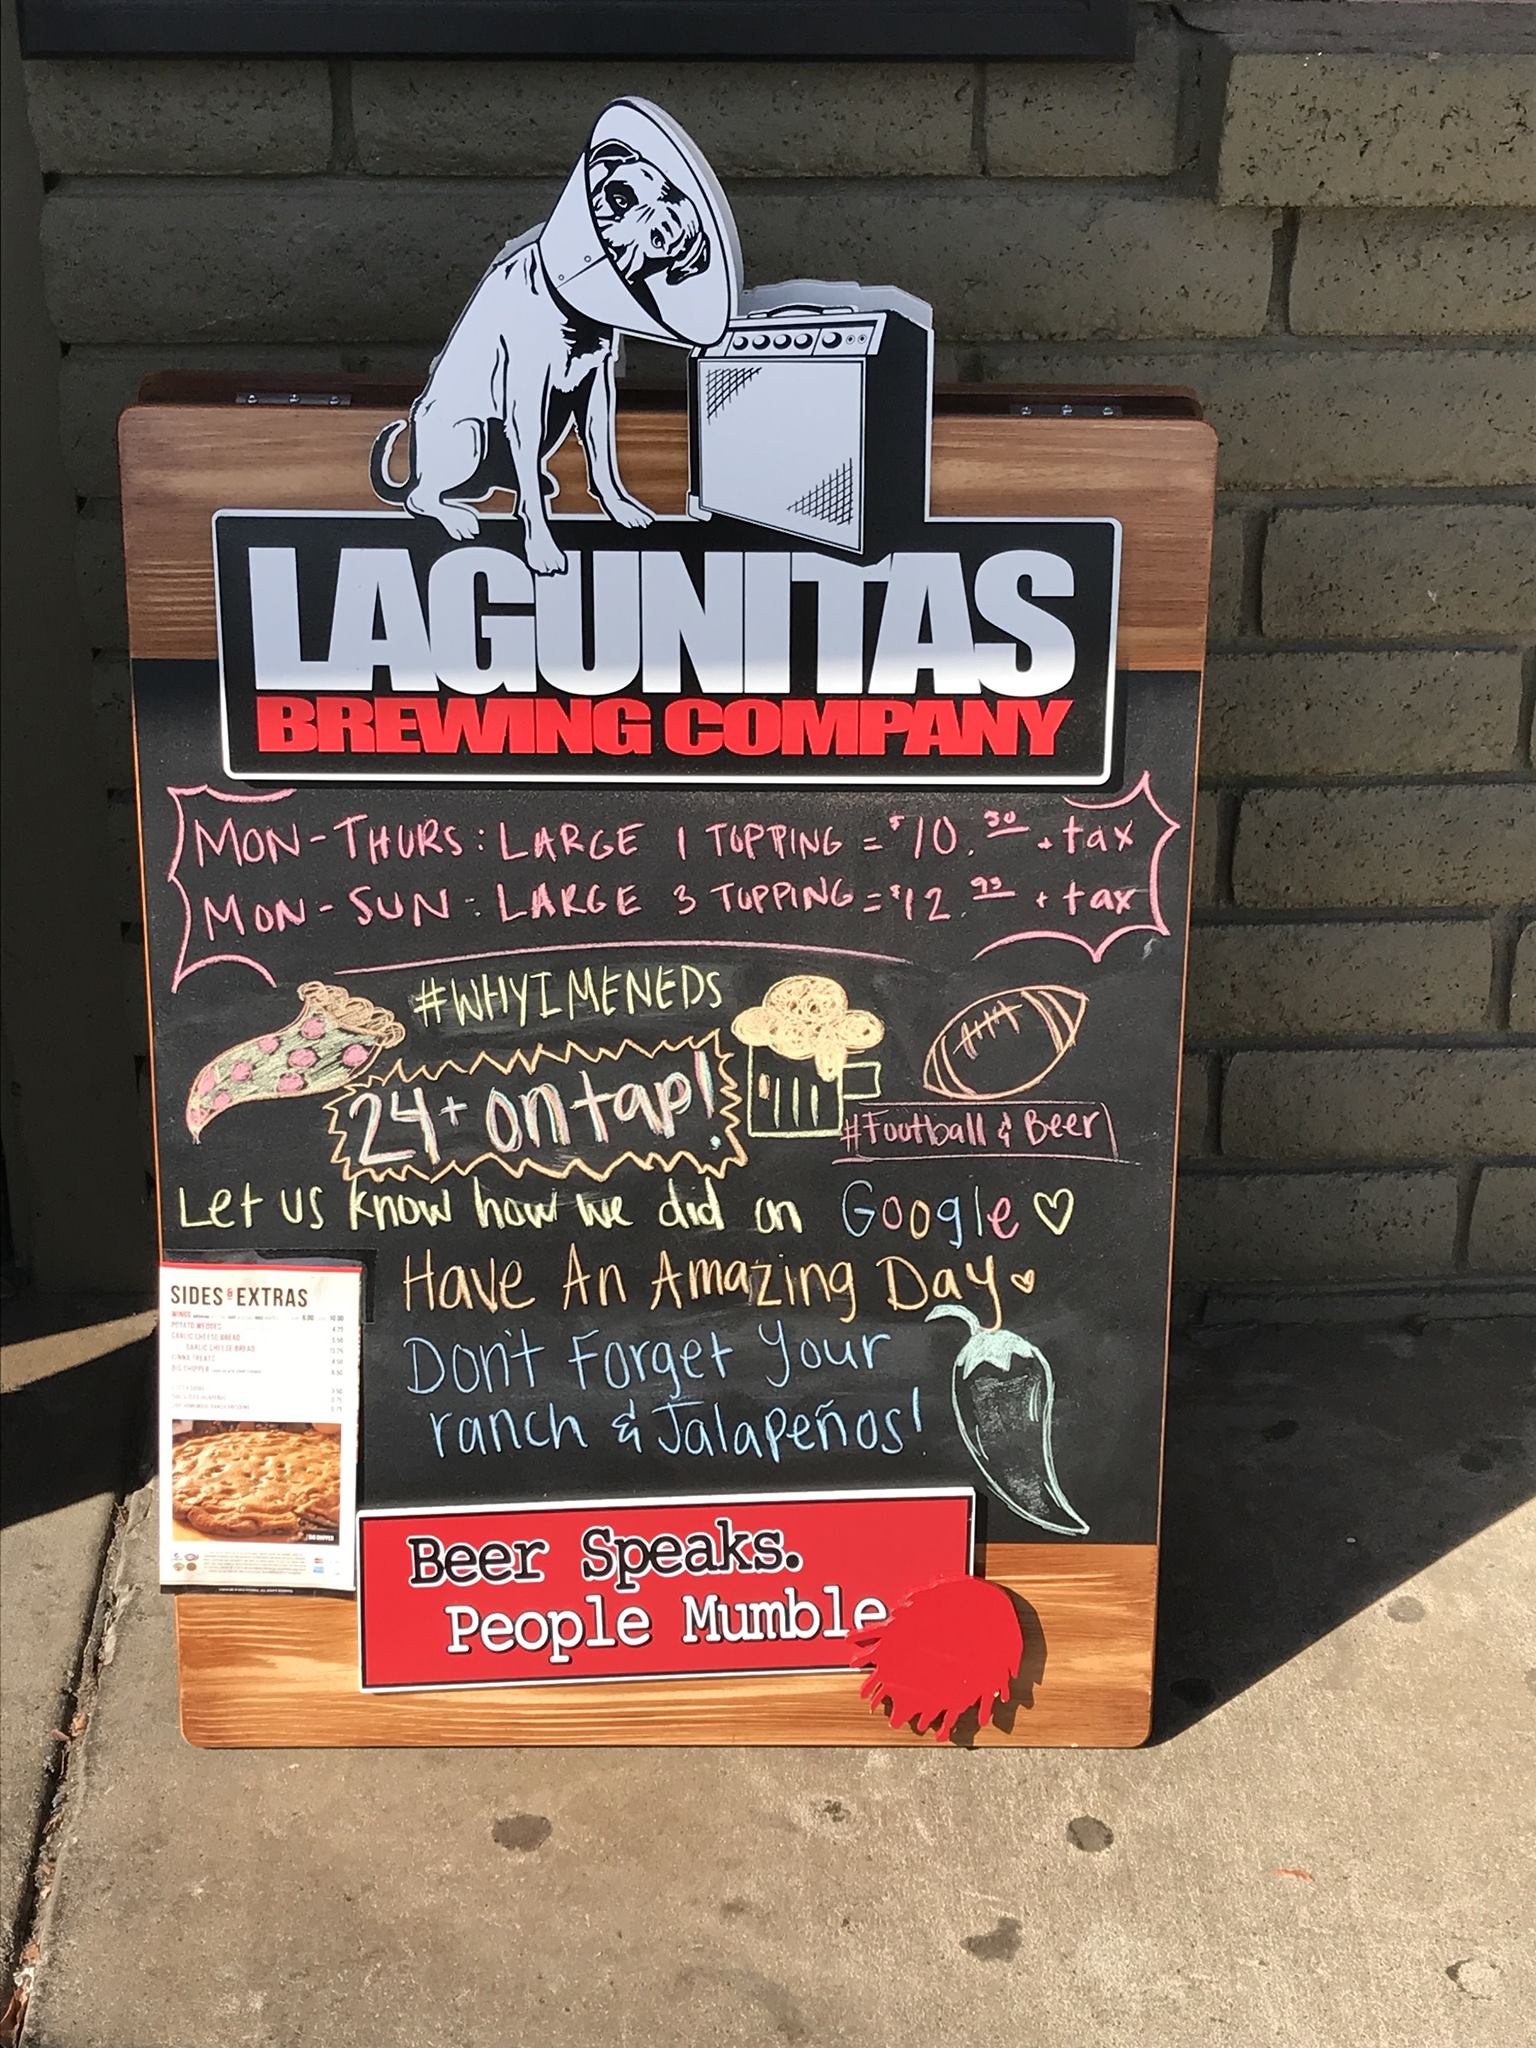 LAGUNITAS
BREWING COMPANY
MON-THURS: LARGE 1 TOPPING = $10.50 + tax
MON-SUN: LARGE 3 TOPPING = $12.95 + tax
#WHYIMENEDS
24+ on tap!
#Football & Beer
Let us know how we did on Google
Have An Amazing Day
Don't Forget Your
ranch & Jalapeños!
SIDES & EXTRAS
WINGS 6.00 10.00
POTATO WEDGES 4.25
GARLIC CHEESE BREAD
GARLIC CHEESE BREAD
CINNA TREATS
BIG CHIPPER
BIG CHIPPER
Beer Speaks.
People Mumble